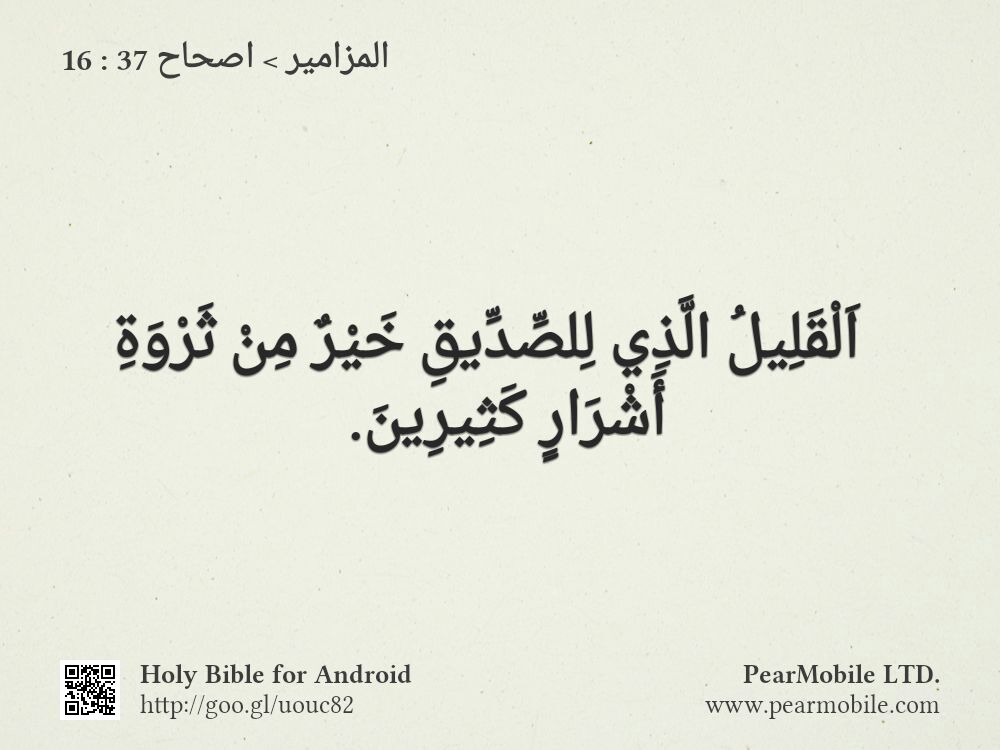 المزامير > اصحاح 37 : 16
اَلْقَلِيلُ الَّذِي لِلصِّدِّيقِ خَيْرٌ مِنْ ثَرْوَةِ
أَشْرَارٍ كَثِيرِينَ.
Holy Bible for Android
http://goo.gl/uouc82
PearMobile LTD.
www.pearmobile.com